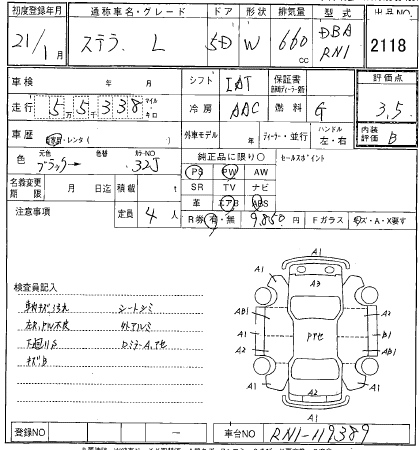 初度登録年月 通称車名・グレード ドア 形状 排気量 型式 出品NO
21/1月 ステラ L 5D W 660cc DBA RN1 2118
車検 年 月 シフト IAT 保証書 評価点
走行 5万5千338 マイル・キロ 冷房 AAC 燃料 G 3.5
車歴 自家用・レンタ( 外車モデル 年 ディーラー・並行 ハンドル 左・右 内装評価 B
色 元色 ブラック→ 色替 カラーNO 32J 純正品に限り○ セールスポイント
PS PW AW
名義変更期限 月 日迄 積載 t SR TV ナビ
革 エアB ABS
注意事項 定員 4人 R券 有・無 9,850円 Fガラス キズ・A・X要す
検査員記入
シートシミ
外アルミ
キズB
A1
A1 A3 A1
AB1 A2
A1 アセ B1
A2 A2
A1 A1
A2
登録NO — 車台NO RN1-119389